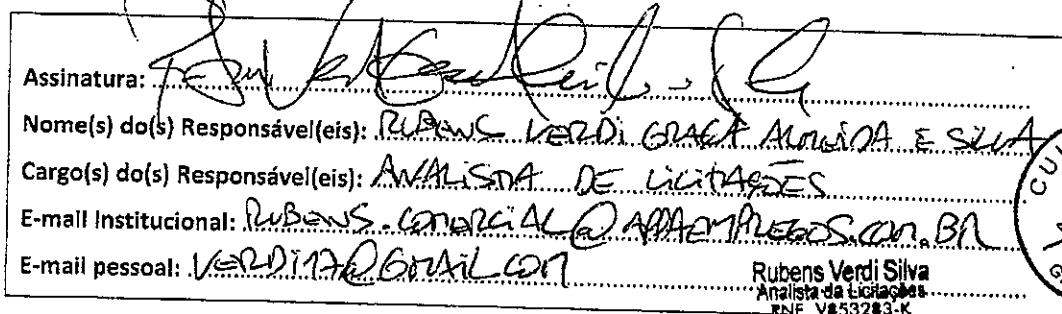 Assinatura:
Nome(s) do(s) Responsável(eis): RUBENS VERDI GRAÇA ALMEIDA E SILVA
Cargo(s) do(s) Responsável(eis): ANALISTA DE LICITAÇÕES
E-mail Institucional: RUBENS.COMERCIAL@APPAEMPREGOS.COM.BR
E-mail pessoal: VERDI17@GMAIL.COM
Rubens Verdi Silva
Analista de Licitações
RNE V853283-K